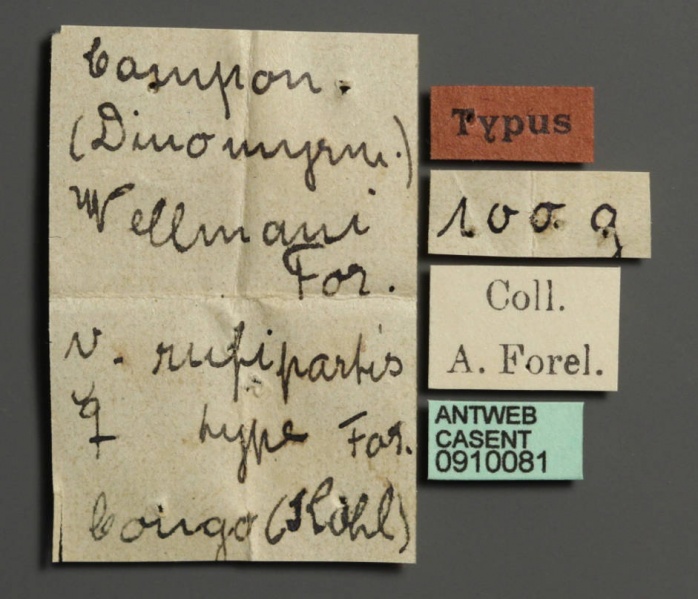 Campon.
(Dinomyrm.)
Wellmani
For.
v. rufipartis
☿ type For.
Congo (Kohl)
Typus
100 g
Coll.
A. Forel.
ANTWEB
CASENT
0910081